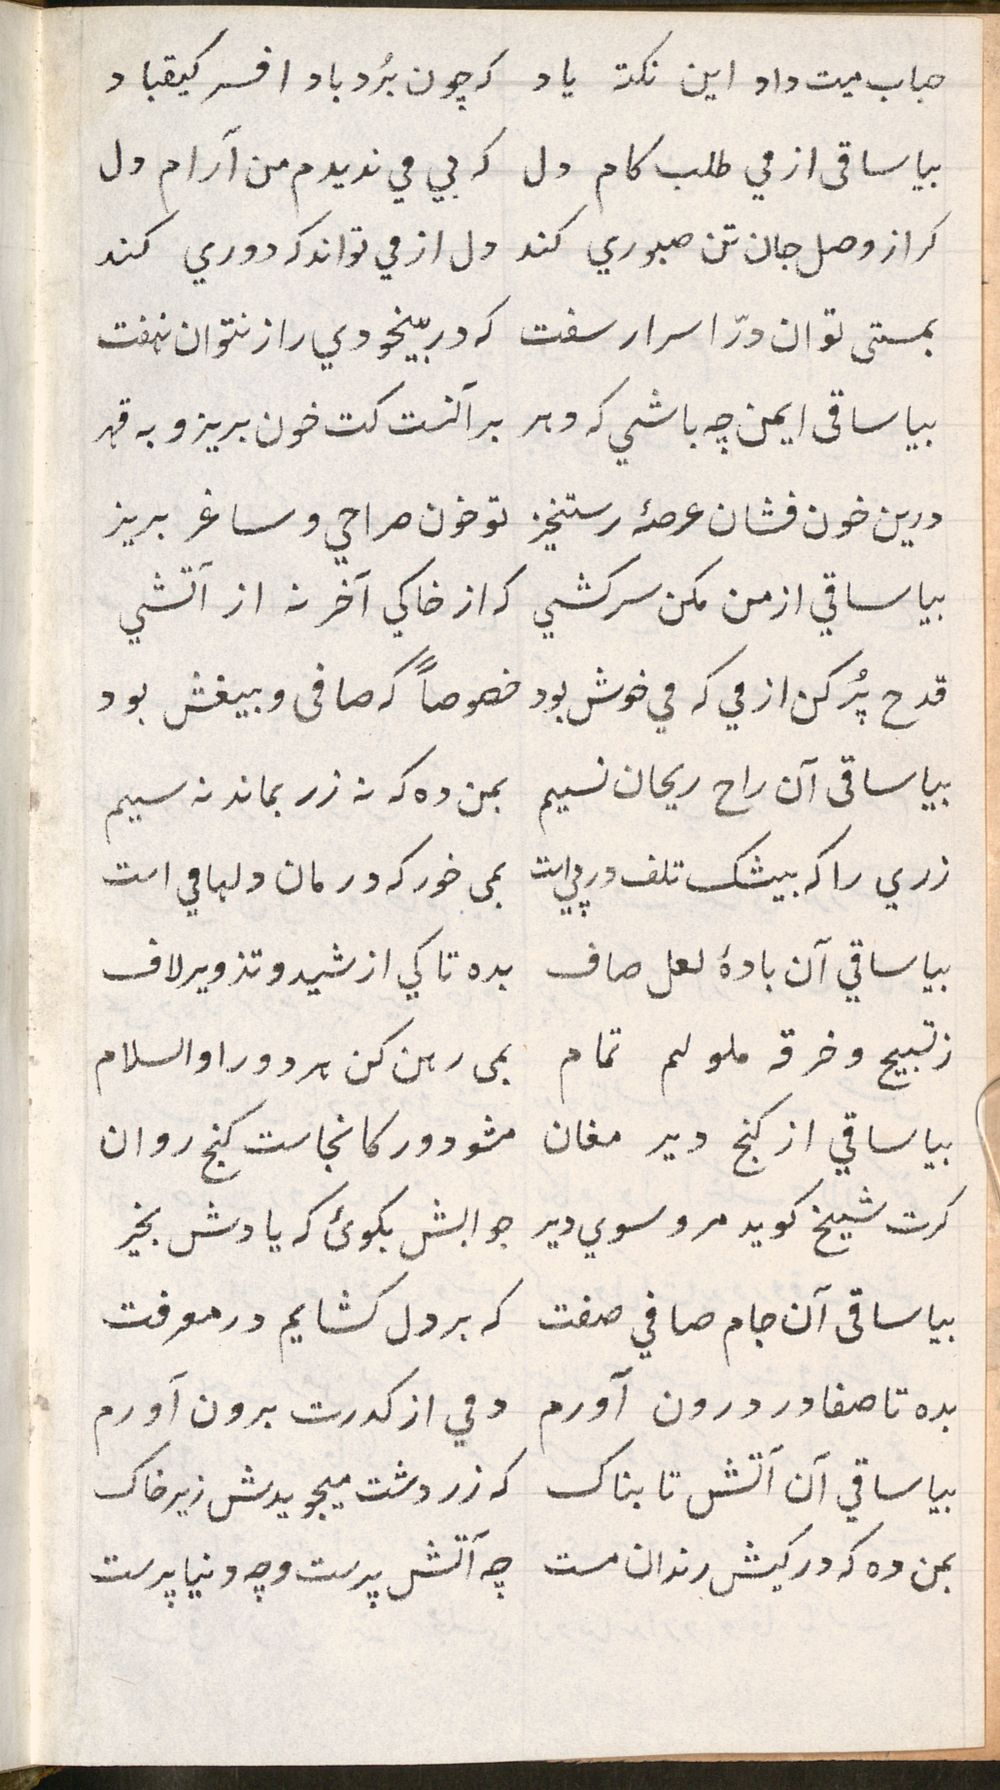 حباب میت داد این نکته یاد که چون بُرد باد افسر کیقباد
بیا ساقی از می طلب کام دل که بی می ندیدم من آرام دل
کر از وصل جان تن صبوری کند دل از می تواند که دوری کند
بمستی توان درّ اسرار سفت که در بیّخودی راز نتوان نهفت
بیا ساقی ایمن چه باشی که دهر بر آنست کت خون بریزد به قهر
درین خون فشان عرصۀ رستخیز تو خون صراحی و ساغر بریز
بیا ساقی از من مکن سرکشی که از خاکی آخر نه از آتشی
قدح پُر کن از می که می خوش بود خصوصاً که صافی و بیغش بود
بیا ساقی آن راح ریحان نسیم بمن ده که نه زر بماند نه سیم
زری را که بیشک تلف در پی است بمی خور که درمان دلها می است
بیا ساقی آن بادۀ لعل صاف بده تا کی از شید و تذویر لاف
ز تسبیح و خرقه ملولم تمام بمی رهن کن هر دو را والسلام
بیا ساقی از کنج دیر مغان مشو دور کانجاست کنج روان
کرت شیخ کوید مرو سوی دیر جوابش بکوئ که یادش بخیر
بیا ساقی آن جام صافی صفت که بر دل کشایم در معرفت
بده تا صفا در درون آورم دمی از کدرت برون آورم
بیا ساقی آن آتش تابناک که زردشت میجویدش زیر خاک
بمن ده که در کیش رندان مست چه آتش پرست و چه دنیا پرست